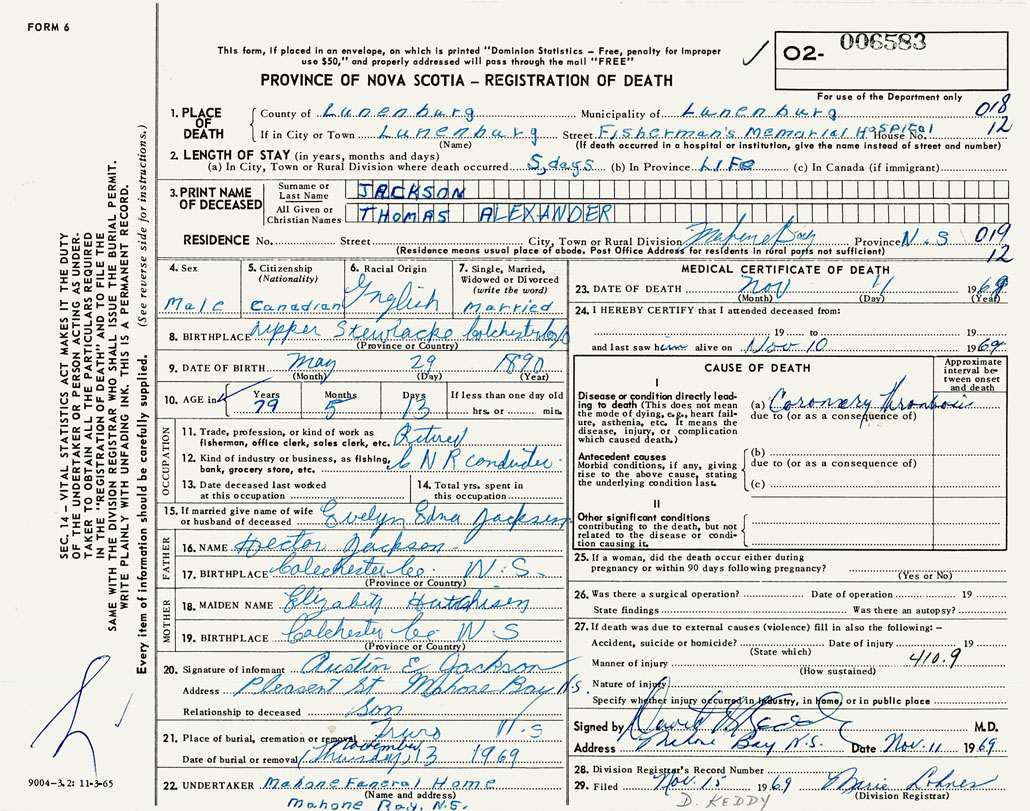 FORM 6
This form, if placed in an envelope, on which is printed "Dominion Statistics – Free, penalty for improper
use $50," and properly addressed will pass through the mail "FREE"
PROVINCE OF NOVA SCOTIA – REGISTRATION OF DEATH
✓ 02- 006583
For use of the Department only
1. PLACE OF DEATH
County of Lunenburg Municipality of Lunenburg 018
If in City or Town Lunenburg Street Fisherman's Memorial Hospital House No. 12
(Name) (If death occurred in a hospital or institution, give the name instead of street and number)
2. LENGTH OF STAY (in years, months and days)
(a) In City, Town or Rural Division where death occurred 5 days (b) In Province LIFe (c) In Canada (if immigrant)
3. PRINT NAME OF DECEASED
Surname or Last Name JACKSON
All Given or Christian Names THOMAS ALEXANDER
RESIDENCE No. Street City, Town or Rural Division Mahone Bay Province N.S 019
(Residence means usual place of abode. Post Office Address for residents in rural parts not sufficient) 12
4. Sex
Male
5. Citizenship
(Nationality)
Canadian
6. Racial Origin
English
7. Single, Married,
Widowed or Divorced
(write the word)
Married
8. BIRTHPLACE Upper Stewiacke Colchester Co
(Province or Country)
9. DATE OF BIRTH May 29 1890
(Month) (Day) (Year)
10. AGE in Years Months Days If less than one day old
79 5 13 hrs. or min.
OCCUPATION
11. Trade, profession, or kind of work as
fisherman, office clerk, sales clerk, etc. Retired
12. Kind of industry or business, as fishing,
bank, grocery store, etc. C N R conducter
13. Date deceased last worked
at this occupation
14. Total yrs. spent in
this occupation
15. If married give name of wife
or husband of deceased Evelyn Edna Jackson
FATHER
16. NAME Hector Jackson
17. BIRTHPLACE Colchester Co. N.S.
(Province or Country)
MOTHER
18. MAIDEN NAME Elizabeth Hutchisen
19. BIRTHPLACE Colchester Co N S
(Province or Country)
20. Signature of informant Austin E Jackson
Address Pleasent St Mahone Bay N.S.
Relationship to deceased Son
21. Place of burial, cremation or removal Truro N.S
Date of burial or removal (Thursday) November 13 1969
22. UNDERTAKER Mahone Funeral Home
(Name and address)
Mahone Bay, N.S.
MEDICAL CERTIFICATE OF DEATH
23. DATE OF DEATH Nov 11 1969
(Month) (Day) (Year)
24. I HEREBY CERTIFY that I attended deceased from:
19 to 19
and last saw him alive on Nov 10 1969
CAUSE OF DEATH
Approximate
interval be-
tween onset
and death
I
Disease or condition directly lead-
ing to death (This does not mean
the mode of dying, e.g., heart fail-
ure, asthenia, etc. It means the
disease, injury, or complication
which caused death.)
(a) Coronary thrombosis
due to (or as a consequence of)
Antecedent causes
Morbid conditions, if any, giving
rise to the above cause, stating
the underlying condition last.
(b)
due to (or as a consequence of)
(c)
II
Other significant conditions
contributing to the death, but not
related to the disease or condi-
tion causing it.
25. If a woman, did the death occur either during
pregnancy or within 90 days following pregnancy?
(Yes or No)
26. Was there a surgical operation? Date of operation 19
State findings Was there an autopsy?
27. If death was due to external causes (violence) fill in also the following: –
Accident, suicide or homicide? Date of injury 19
(State which) 410.9
Manner of injury
(How sustained)
Nature of injury
Specify whether injury occurred in industry, in home, or in public place
Signed by M.D.
Address Mahone Bay N.S. Date Nov. 11 1969
28. Division Registrar's Record Number
29. Filed Nov. 15 1969 Marie Lohnes
(Division Registrar)
D. KEDDY
SEC. 14 – VITAL STATISTICS ACT MAKES IT THE DUTY
OF THE UNDERTAKER OR PERSON ACTING AS UNDER-
TAKER TO OBTAIN ALL THE PARTICULARS REQUIRED
IN THE "REGISTRATION OF DEATH" AND TO FILE THE
SAME WITH THE DIVISION REGISTRAR WHO SHALL ISSUE THE BURIAL PERMIT.
WRITE PLAINLY WITH UNFADING INK. THIS IS A PERMANENT RECORD.
Every item of information should be carefully supplied. (See reverse side for instructions.)
9004-3.2: 11-3-65